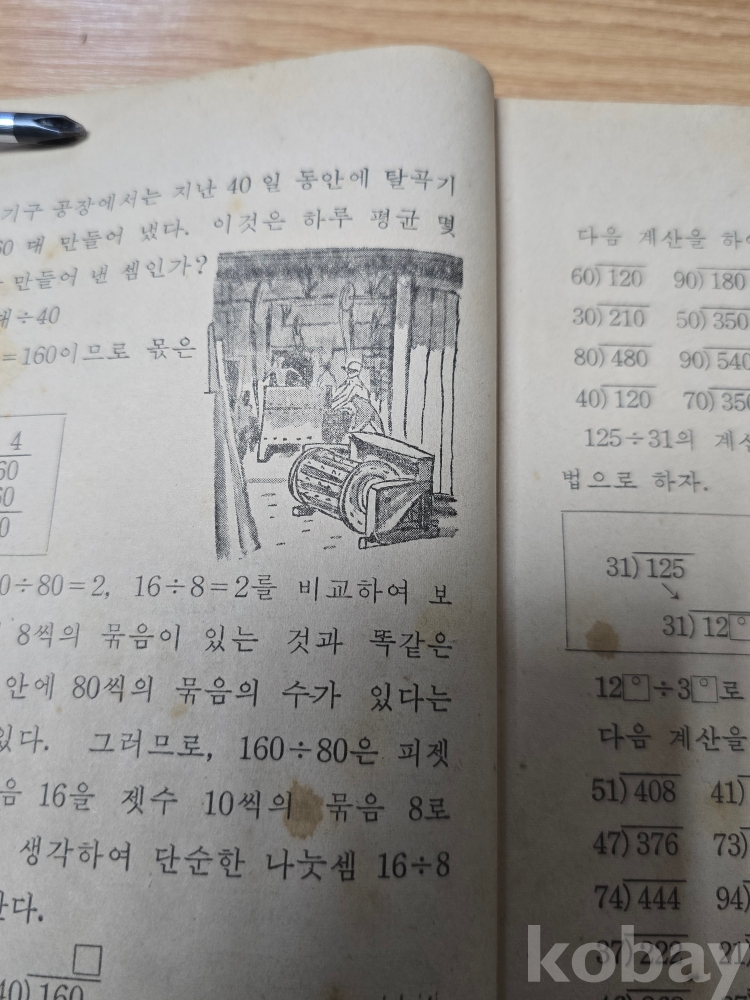 기구 공장에서는 지난 40 일 동안에 탈곡기
60 대 만들어 냈다. 이것은 하루 평균 몇
만들어 낸 셈인가?
대÷40
=160이므로 몫은
4
60
60
0
0÷80=2, 16÷8=2를 비교하여 보
8씩의 묶음이 있는 것과 똑같은
안에 80씩의 묶음의 수가 있다는
있다. 그러므로, 160÷80은 피젯
음 16을 젯수 10씩의 묶음 8로
생각하여 단순한 나눗셈 16÷8
한다.
□
40)160
다음 계산을 하여
60)120 90)180
30)210 50)350
80)480 90)540
40)120 70)350
125÷31의 계산
법으로 하자.
31)125
↘
31)12▢
12▢÷3▢로
다음 계산을
51)408 41)
47)376 73)
74)444 94)
37)222 21)
kobay